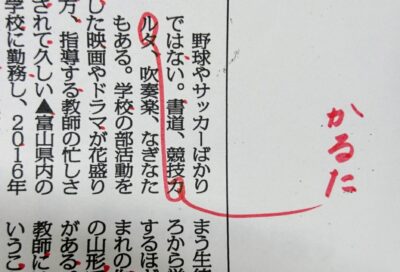 かるた
野球やサッカーばかり
ではない。書道、競技カ
ルタ、吹奏楽、なぎなた
もある。学校の部活動を
した映画やドラマが花盛り
方、指導する教師の忙しさ
されて久しい▲富山県内の
学校に勤務し、2016年
まう生
ろから
するほ
まれの
の山形
がある。
教師に
いうこ